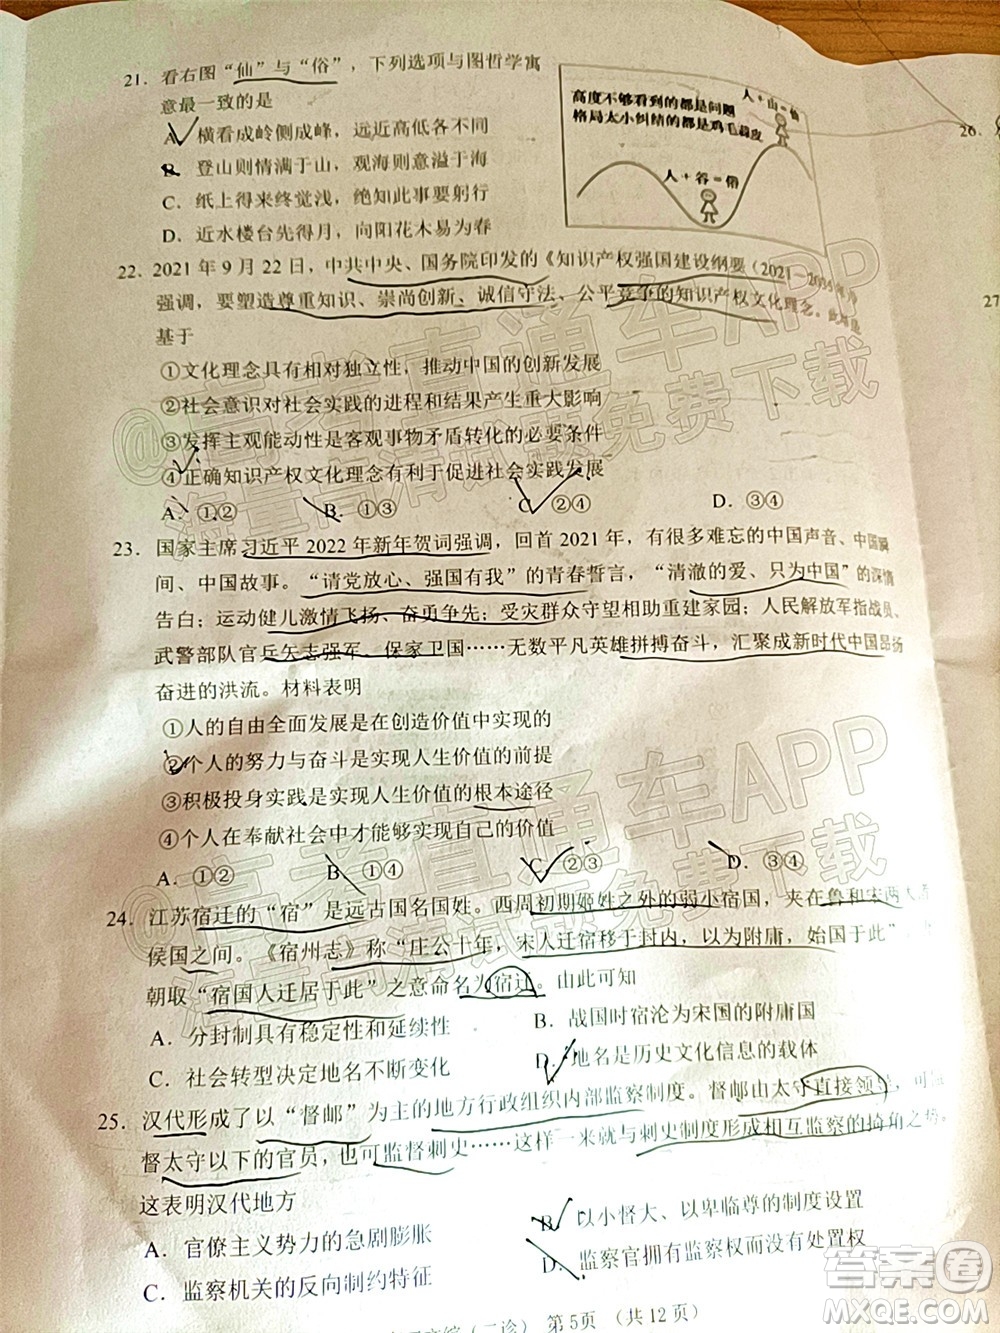 21. 看右图“仙”与“俗”，下列选项与图哲学寓
意最一致的是
A. 横看成岭侧成峰，远近高低各不同
B. 登山则情满于山，观海则意溢于海
C. 书得来终觉浅，绝知此事要躬行
D. 近水楼台先得月，向阳花木易为春
高度不够看到的都是问题
格局太小纠结的都是鸡毛蒜皮
人+山=仙
人+谷=俗
26.
27
22. 2021年9月22日，中共中央、国务院印发的《知识产权强国建设纲要（2021—2035年）》
强调，要塑造尊重知识、崇尚创新、诚信守法、公平竞争的知识产权文化理念。
基于
①文化理念具有相对独立性，推动中国的创新发展
②社会意识对社会实践的进程和结果产生重大影响
③发挥主观能动性是客观事物矛盾转化的全部条件
④正确知识产权文化理念有利于促进社会实践发展
A. ①② B. ①③ C. ②④ D. ③④
23. 国家主席习近平2022年新年贺词强调，回首2021年，有很多难忘的中国声音、中国瞬
间、中国故事。“请党放心、强国有我”的青春誓言，“清澈的爱、只为中国”的深情
告白；运动健儿激情飞扬、奋勇争先；受灾群众守望相助重建家园；人民解放军指战员、
武警部队官兵矢志强军、保家卫国……无数平凡英雄拼搏奋斗，汇聚成新时代中国昂扬
奋进的洪流。材料表明
①人的自由全面发展是在创造价值中实现的
②个人的努力与奋斗是实现人生价值的前提
③积极投身实践是实现人生价值的根本途径
④个人在奉献社会中才能够实现自己的价值
A. ①② B. ①④ C. ②③ D. ③④
24. 江苏宿迁的“宿”是远古国名国姓。西周初期姬姓之外的弱小宿国，夹在鲁和宋两大诸
侯国之间。《宿州志》称“庄公十年，宋人迁宿移于封内，以为附庸，始国于此”，
朝取“宿国人迁居于此”之意命名为宿迁。由此可知
A. 分封制具有稳定性和延续性 B. 战国时宿沦为宋国的附庸国
C. 社会转型决定地名不断变化 D. 地名是历史文化信息的载体
25. 汉代形成了以“督邮”为主的地方行政组织内部监察制度。督邮由太守直接领导，可
督太守以下的官员，也可监督刺史……这样一来，就与刺史制度形成相互监察的掎角之势。
这表明汉代地方
A. 官僚主义势力的急剧膨胀 B. 以小督大、以卑临尊的制度设置
C. 监察机关的反向制约特征 D. 监察官拥有监察权而无处置权
（二诊） 第5页 （共12页）
@高考直通车APP
海量高清试题免费下载
@高考直通车APP
海量高清试题免费下载
答案圈
MXQE.COM